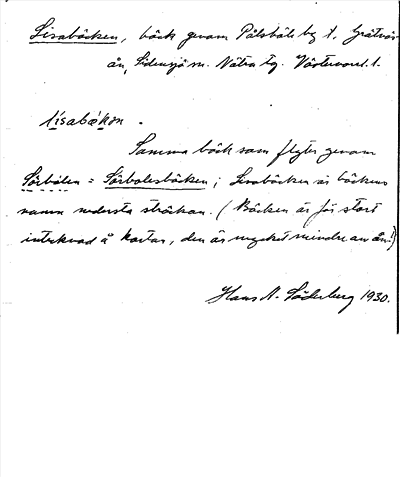 Lisabäcken, bäck genom Pålsböle by t. Grätnäs-
ån, Sidensjö sn. Nätra tg. Västernorrl. l.
lisabäkɷn.
Samma bäck som flyter genom
Sörbölen = Sörbolesbäcken; Lisabäcken är bäckens
namn nedersta sträckan. (Bäcken är för stort
inteknad å kartan, den är mycket mindre än ån.)
Hans N. Söderberg 1930.